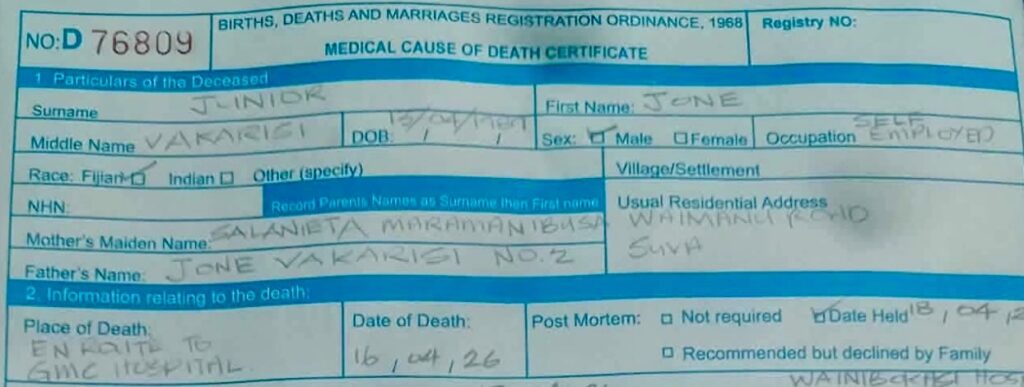 NO: D 76809
BIRTHS, DEATHS AND MARRIAGES REGISTRATION ORDINANCE, 1968
MEDICAL CAUSE OF DEATH CERTIFICATE
Registry NO:
1. Particulars of the Deceased
Surname JUNIOR
First Name: JONE
Middle Name VAKARISI
DOB: 15/04/
Sex: Male Female
Occupation SELF EMPLOYED
Race: Fijian Indian Other (specify)
Village/Settlement
NHN:
Record Parents Names as Surname then First name
Usual Residential Address
WAIMANU ROAD
SUVA
Mother's Maiden Name: SALANIETA MARAMANIBUSA
Father's Name: JONE VAKARISI NO.2
2. Information relating to the death:
Place of Death:
EN ROUTE TO
GMC HOSPITAL
Date of Death:
16, 04, 26
Post Mortem: Not required Date Held 18, 04,
Recommended but declined by Family